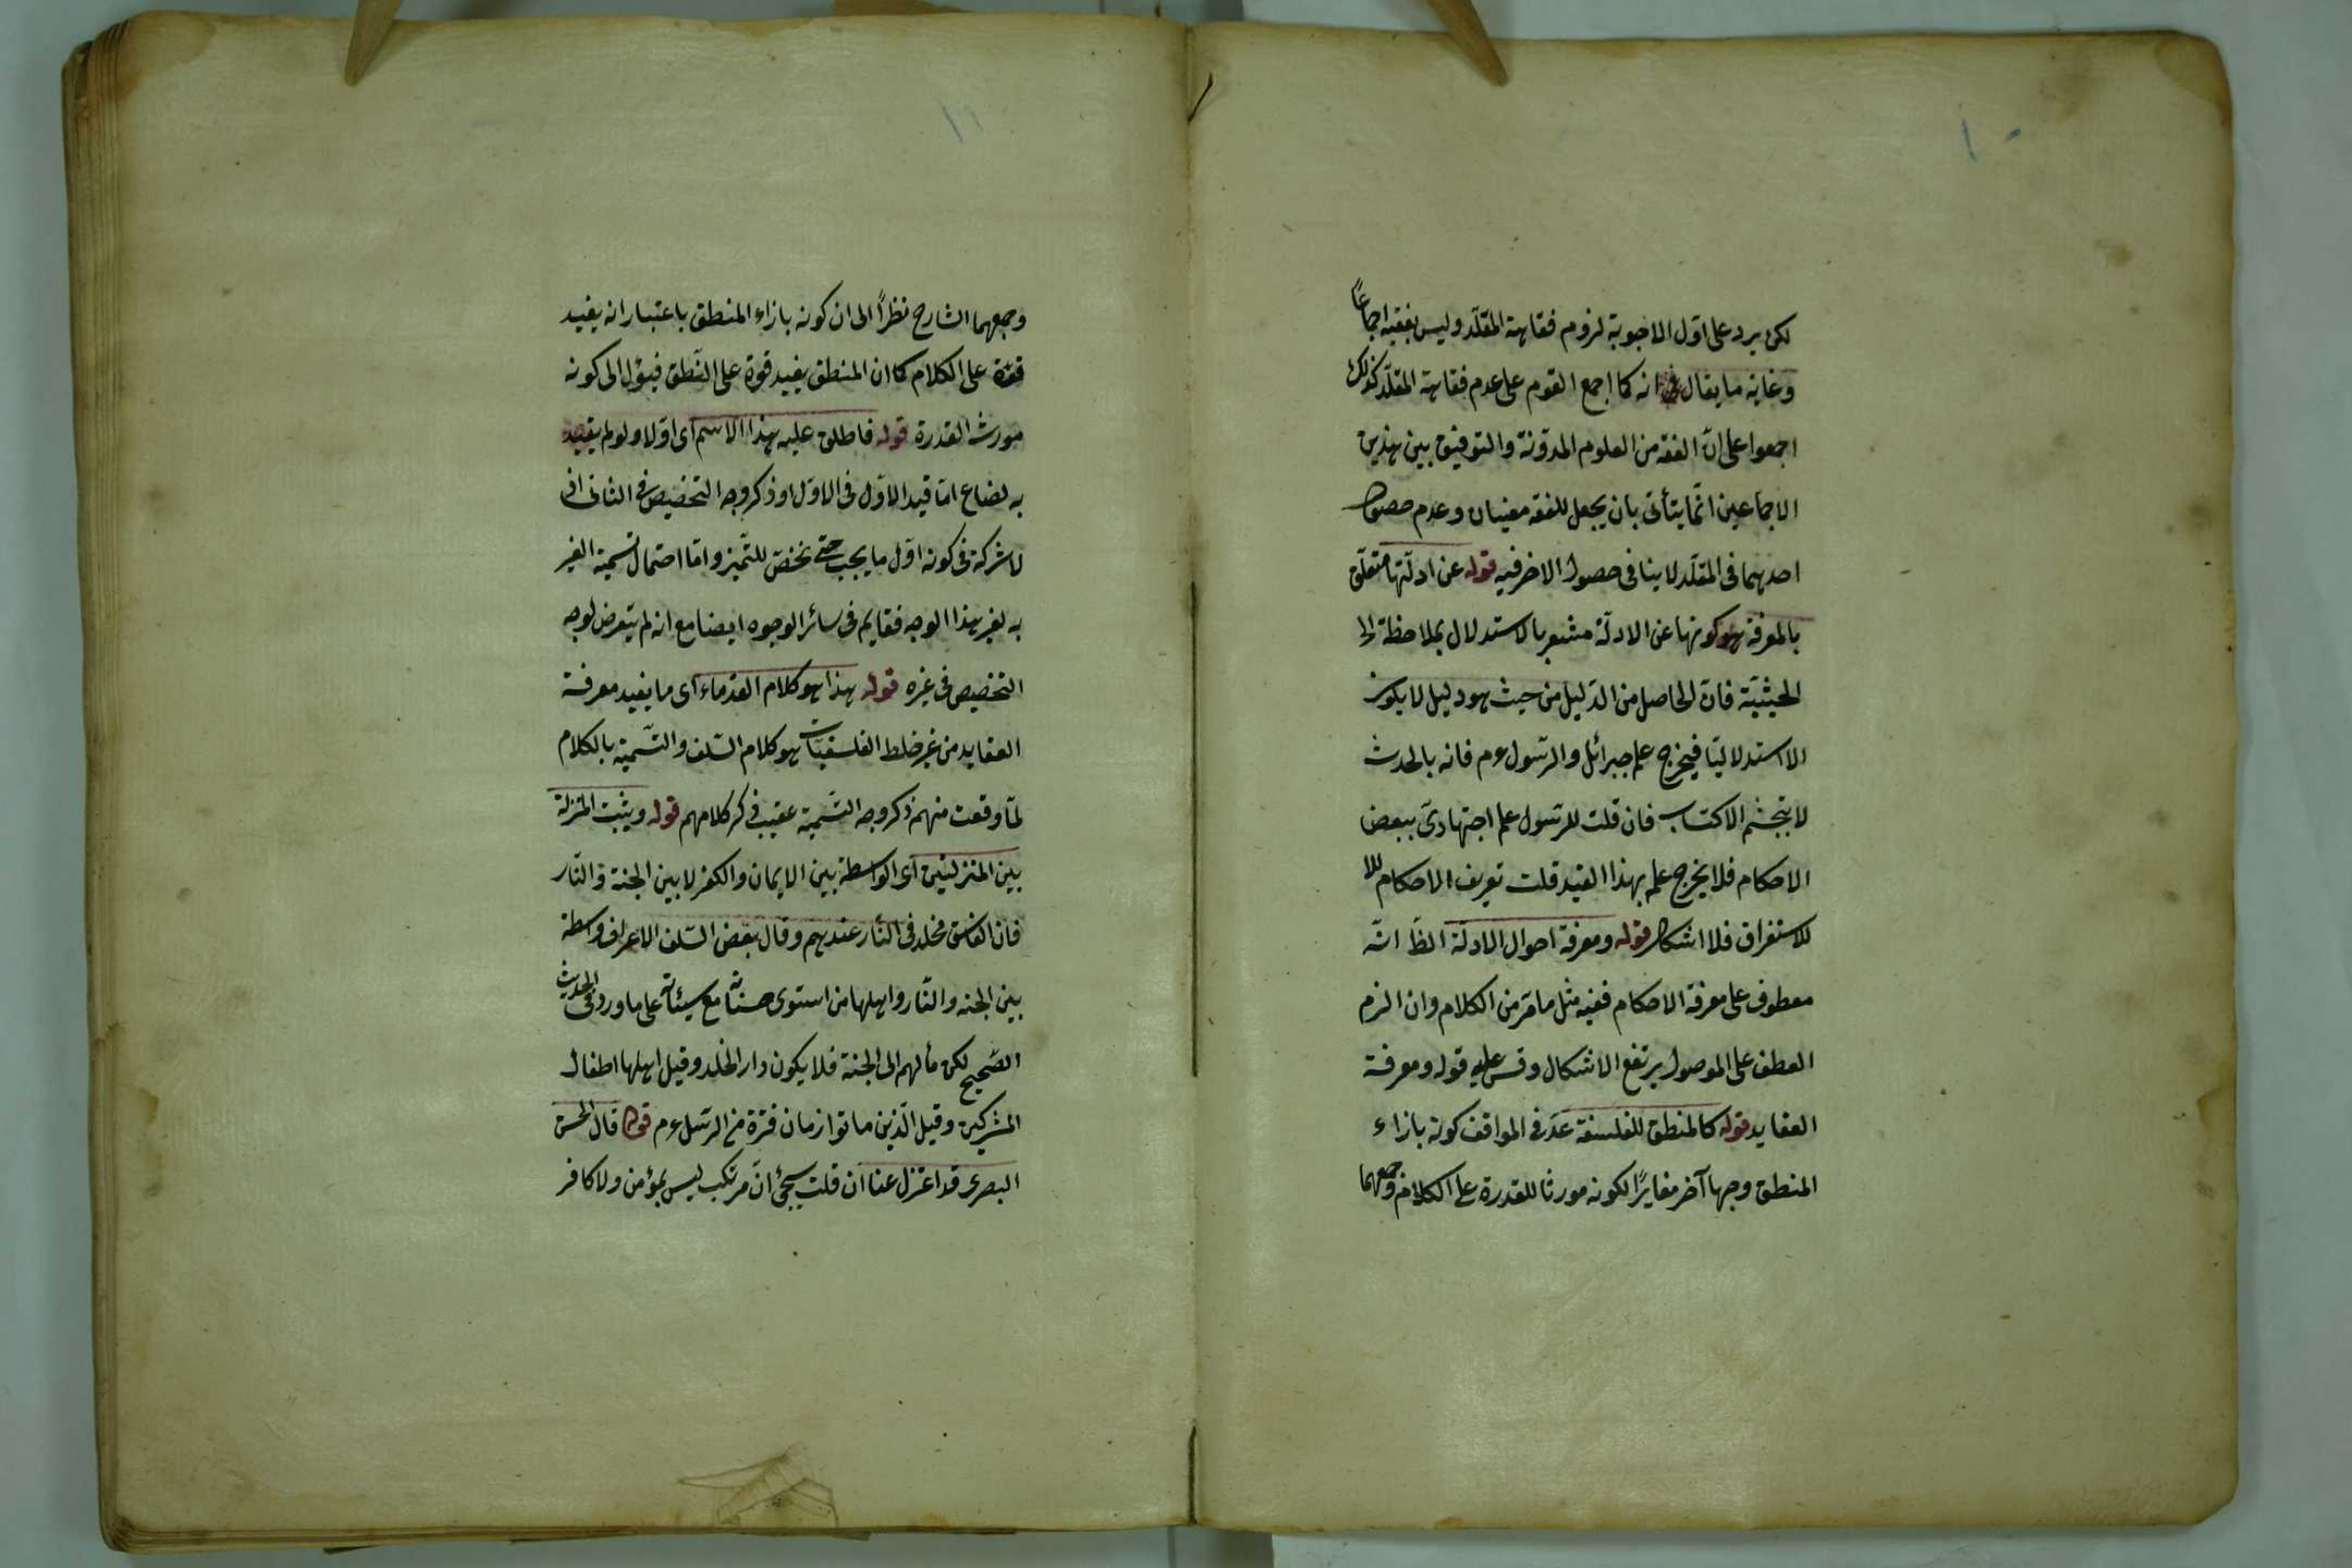 ١٠
لكن يرد على اول الاجوبة لزوم فقاهة المقلّد وليس بفقيه اجماعاً
وغاية ما يقال انه كما اجمع القوم على عدم فقاهة المقلّد كذلك
اجمعوا على انّ الفقه من العلوم المدوّنة والتوفيق بين هذين
الاجماعين انّما يتأتى بان يجعل للفقه معنيان وعدم حصول
احدهما فى المقلّد لا ينافى حصول الاخر فيه قوله عن ادلّتها متعلّق
بالمعرفة وكونها عن الادلّة مشعر بالاستدلال بملاحظة
الحيثيّة فانّ الحاصل من الدّليل من حيث هو دليل لا يكون
الا استدلاليّا فيخرج علم جبرائل والرّسول عم فانه بالحدث
لا بتجشّم الاكتساب فان قلت للرّسول علم اجتهادىّ ببعض
الاحكام فلا يخرج علمه بهذا القيد قلت تعريف الاحكام
للاستغراق فلا اشكال قوله ومعرفة احوال الادلّة الظّ انّه
معطوف على معرفة الاحكام ففيه مثل ما مرّ من الكلام وان التزم
العطف على الموصول يرتفع الاشكال وقس عليه قوله ومعرفة
العقايد قوله كالمنطق للفلسفة عدّ فى المواقف كونه بازاء
المنطق وجها آخر مغايرًا لكونه مورثا للقدرة على الكلام وجمعهما
١١
وجمعهما الشارح نظراً الى ان كونه بازاء المنطق باعتبار انه يفيد
قوّة على الكلام كما ان المنطق يفيد قوة على النّطق فيؤل الى كونه
مورث القدرة قوله فاطلق عليه هذا الاسم اى اوّلا ولو لم يقيّد
به لضاع امّا قيد الاوّل فى الاوّل او ذكر وجه التخصيص فى الثانى اذ
لا شركة فى كونه اوّل ما يجب حتّى يخصّ للتّميز وامّا احتمال تسمية الغير
به لغير هذا الوجه فقايم فى سائر الوجوه ايضا مع انه لم يتعرض لوجه
التخصيص فى غيره قوله هذا هو كلام القدماء اى ما يفيد معرفة
العقايد من غير خلط الفلسفيّات هو كلام السّلف والتّسمية بالكلام
لمّا وقعت منهم ذكر وجه التّسمية عقيب ذكر كلامهم قوله ويثبت المنزلة
بين المنزلتين اى الواسطة بين الايمان والكفر لا بين الجنة والنّار
فان الفاسق مخلد فى النّار عندهم وقال بعض السّلف الاعراف واسطة
بين الجنه والنّار واهلها من استوى حسناته مع سيئاته على ما ورد فى الحديث
الصّحيح لكن مألهم الى الجنة فلا يكون دار الخلد وقيل اهلها اطفال
المشركين وقيل الّذين ماتوا زمان فترة من الرّسل عم قوله قال الحسن
البصرى قد اعتزل عنا ان قلت سيجئ انّ مرتكب ليس بمؤمن ولا كافر